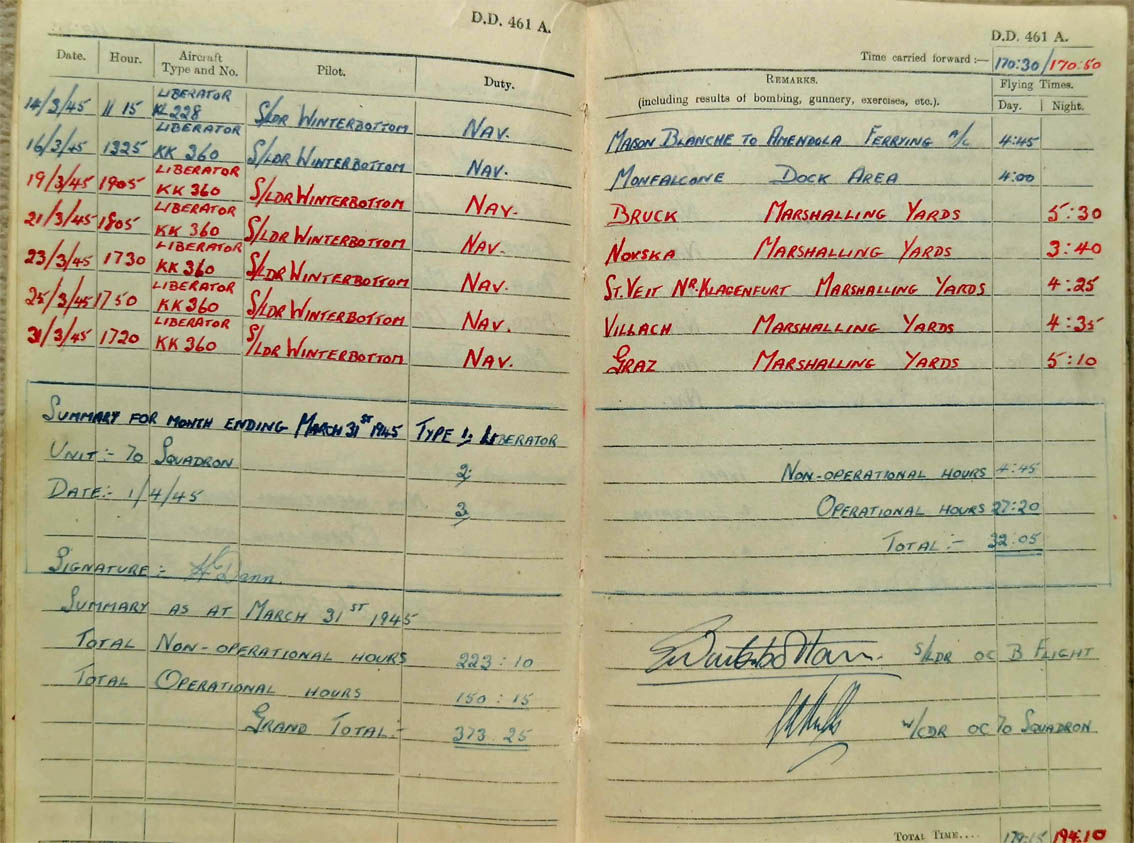 D.D. 461 A.
Date. Hour. Aircraft Type and No. Pilot. Duty.
14/3/45 11 15 LIBERATOR KL 228 S/LDR WINTERBOTTOM NAV.
16/3/45 1325 LIBERATOR KK 360 S/LDR WINTERBOTTOM NAV.
19/3/45 1905 LIBERATOR KK 360 S/LDR WINTERBOTTOM NAV.
21/3/45 1805 LIBERATOR KK 360 S/LDR WINTERBOTTOM NAV.
23/3/45 1730 LIBERATOR KK 360 S/LDR WINTERBOTTOM NAV.
25/3/45 1750 LIBERATOR KK 360 S/LDR WINTERBOTTOM NAV.
31/3/45 1720 LIBERATOR KK 360 S/LDR WINTERBOTTOM NAV.
SUMMARY FOR MONTH ENDING MARCH 31ST 1945 TYPE 1; LIBERATOR
UNIT:- 70 SQUADRON 2;
DATE:- 1/4/45 3;
SIGNATURE:- Dann.
SUMMARY AS AT MARCH 31ST 1945
TOTAL NON-OPERATIONAL HOURS 223:10
TOTAL OPERATIONAL HOURS 150:15
GRAND TOTAL:- 373.25
D.D. 461 A.
Time carried forward :— 170:30/170:50
REMARKS. Flying Times.
(including results of bombing, gunnery, exercises, etc.). Day. Night.
MAISON BLANCHE TO AMENDOLA FERRYING A/C 4:45
MONFALCONE DOCK AREA 4:00
BRUCK MARSHALLING YARDS 5:30
NOVSKA MARSHALLING YARDS 3:40
ST. VEIT NR. KLAGENFURT MARSHALLING YARDS 4:25
VILLACH MARSHALLING YARDS 4:35
GRAZ MARSHALLING YARDS 5:10
NON-OPERATIONAL HOURS 4:45
OPERATIONAL HOURS 27:20
TOTAL:- 32:05
Winterbottom. S/LDR OC B FLIGHT
W/CDR OC 70 SQUADRON
TOTAL TIME.... 179:15 194:10